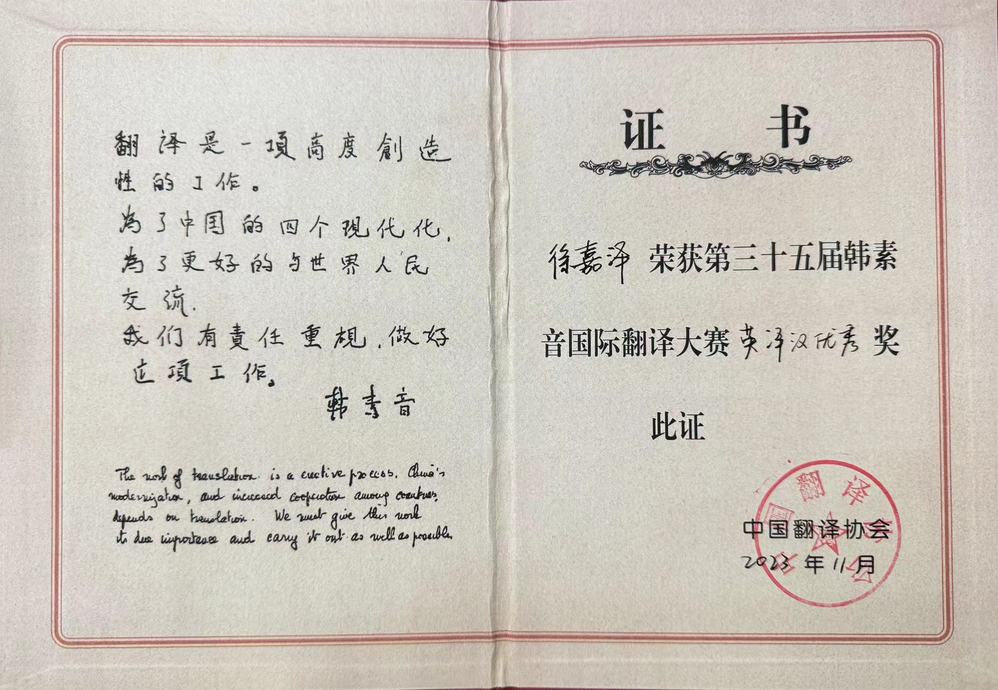 翻译是一項高度創造
性的工作。
為了中国的四个現代化,
為了更好的与世界人民
交流.
我们有責任重視,做好
这項工作。
韩素音
The work of translation is a creative process. China's
modernization, and increased cooperation among countries,
depends on translation. We must give this work
its due importance and carry it out as well as possible.
证 书
徐嘉泽 荣获第三十五届韩素
音国际翻译大赛 英译汉优秀 奖
此证
中国翻译协会
中国翻译协会
2023 年 11 月